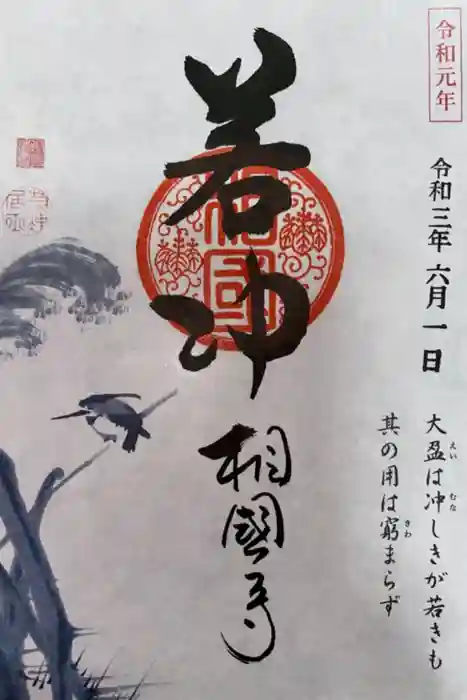 令和元年
令和三年六月一日
大盈は冲しきが若きも
えい
むな
其の用は窮まらず
きわ
若冲
相國
相國寺